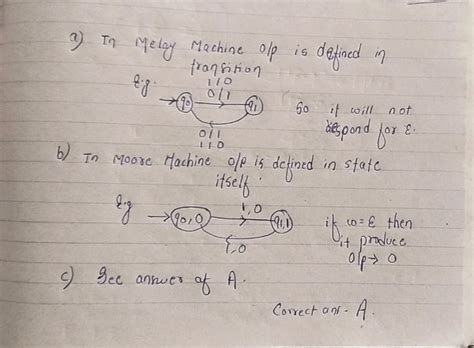 a) In Melay Machine o/p is defined in
transition
E.g. 1/0
0/1
q0 q1 So it will not
respond for ε.
0/1
1/0
b) In Moore Machine o/p is defined in state
itself
E.g 1,0
q0,0 q1,1 if ω=ε then
it produce
1,0 O/p → 0
c) See answer of A.
Correct ans - A.